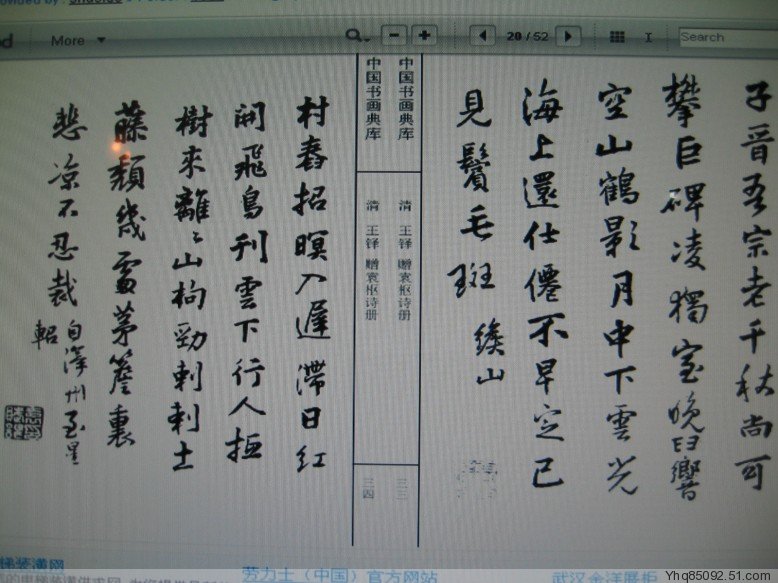 More
20 / 52
Search
子晋吾宗老千秋尚可
攀巨碑凌獨室晚臼響
空山鶴影月中下雲光
海上還仕僊不早定已
見鬢毛斑 緱山
中国书画典库 清 王铎 赠袁枢诗册 三三
中国书画典库 清 王铎 赠袁枢诗册 三四
村舂招暝入遲滯日紅
開飛鳥刊雲下行人拒
樹來離〻山枸勁刺刺士
藤頹幾畱茅簷裏
悲凉不忍裁 自澤州至星
軺
梯装潢网
劳力士（中国）官方网站
Yhq85092.51.com